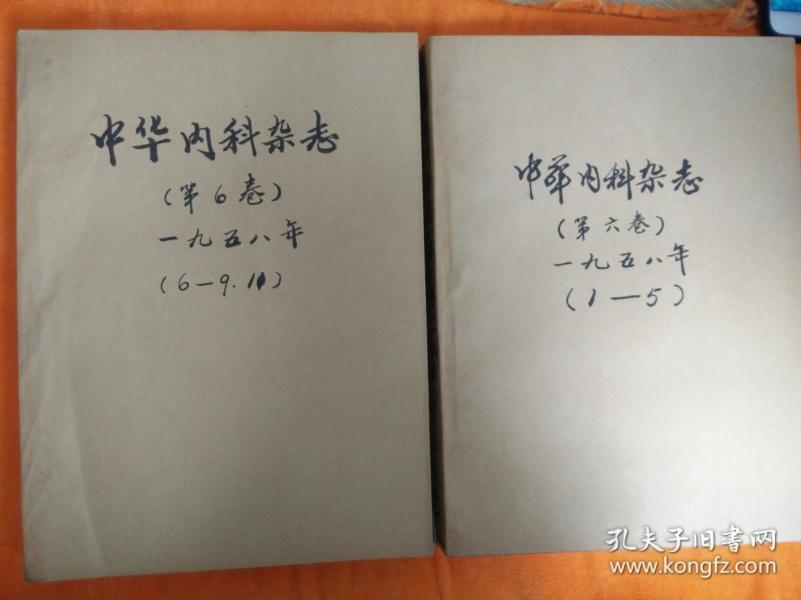 中华内科杂志
(第6卷)
一九五八年
(6—9.11)
中华内科杂志
(第六卷)
一九五八年
(1—5)
孔夫子旧书网
www.kongfz.com